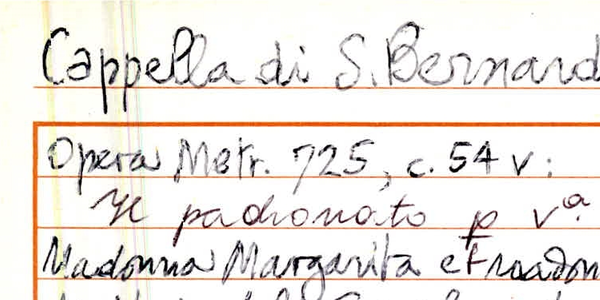 Cappella di S. Bernard
Opera Metr. 725, c. 54 v:
Il padronato p va
Madonna Margarita et madon